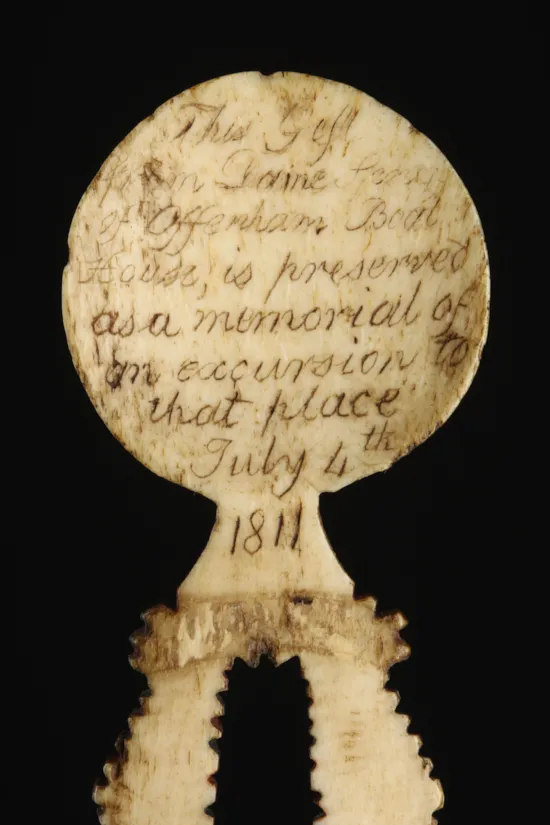 This Gift
from Dame
of Offenham Boat
House, is preserved
as a memorial of
an excursion to
that place
July 4th
1811